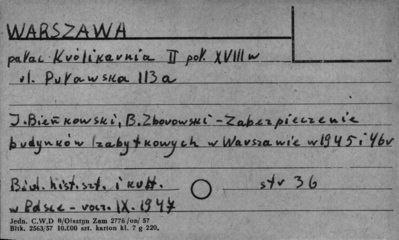 WARSZAWA
pałac Królikarnia II poł. XVIII w
ul. Puławska 113a
J. Bieńkowski, B. Zborowski - Zabezpieczenie
budynków zabytkowych w Warszawie w 1945 i 46 r
Biul. hist. szt. i kult. str 36
w Polsce - rocz. IX. 1947
Jedn. C.W.D 8/Olsztyn Zam 2776/on/57
Bltk. 2563/57 10.000 szt. karton kl. 7 g 220.